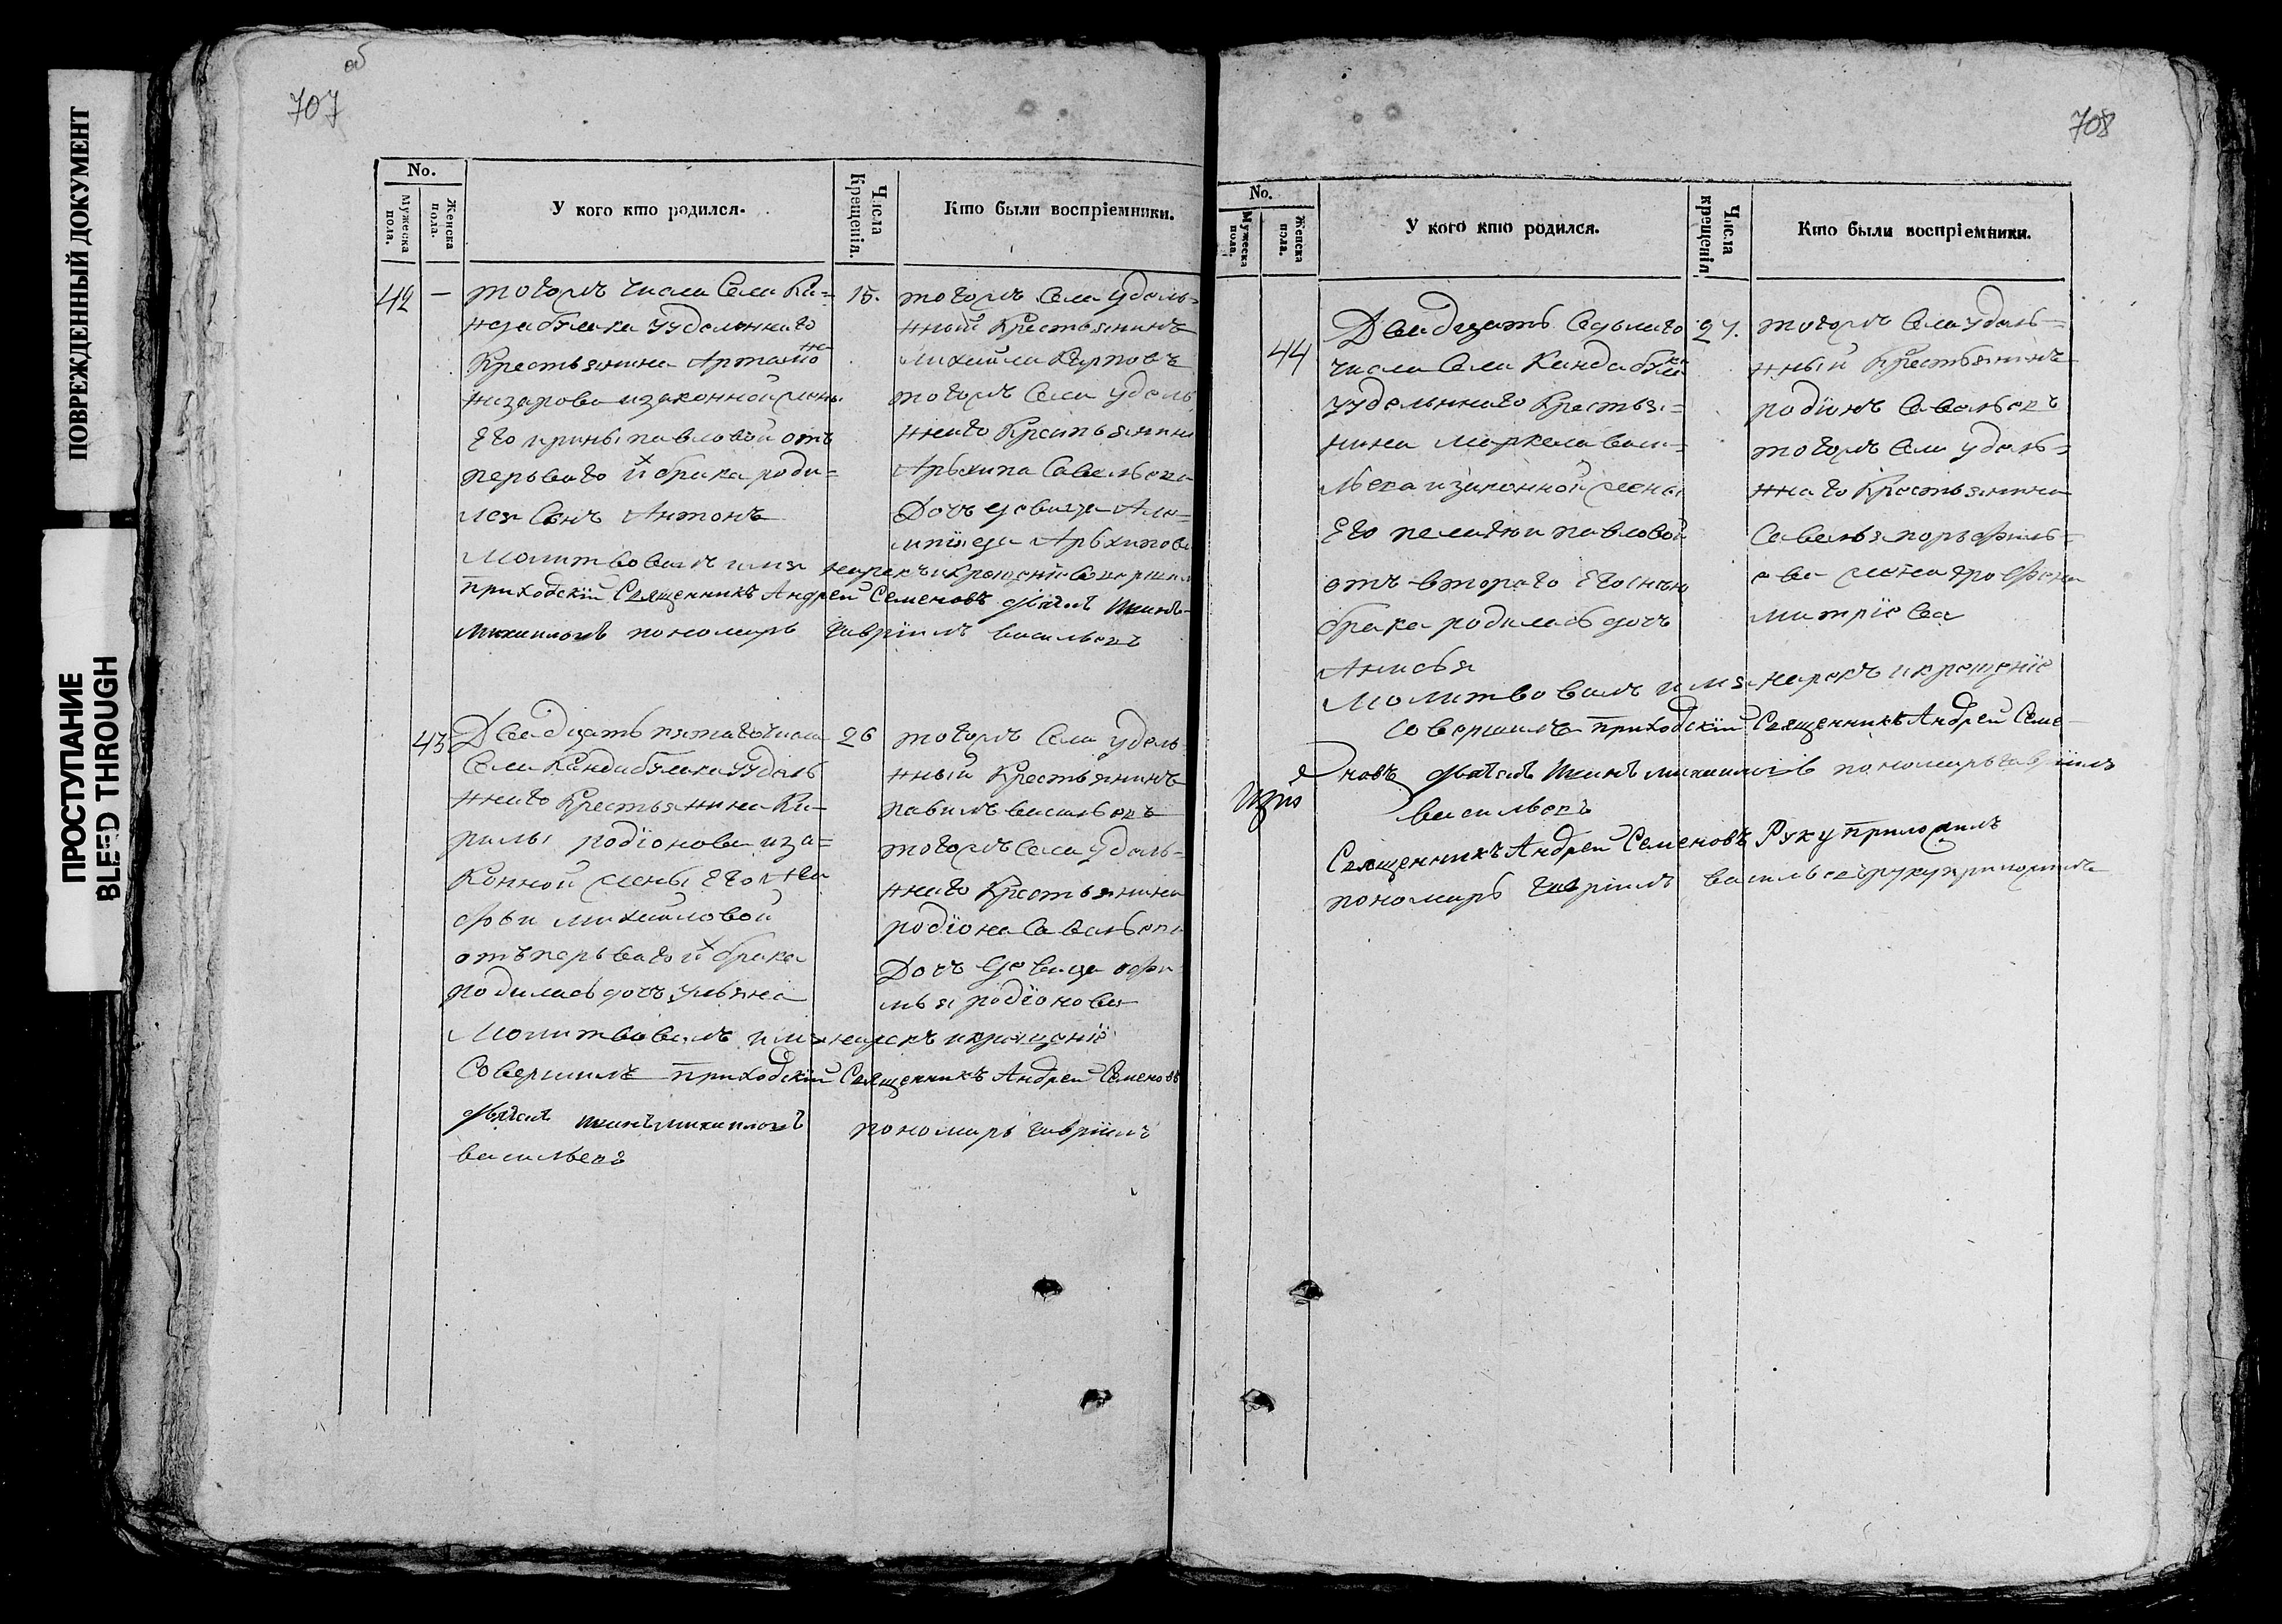 ПОВРЕЖДЕННЫЙ ДОКУМЕНТ
ПРОСТУПАНИЕ
BLEED THROUGH
об
707
No.
Мужеска пола.
Женска пола.
У кого кто родился.
Числа Крещенія.
Кто были воспріемники.
42 —
тогожъ числа Села Ка=
ндабулака удельннаго
Крестьянина Артамо
на
назарова изаконной жены
Его ирины павловой отъ
перьваго ихъ брака роди=
лся Сынъ Антонъ
15.
тогожъ Села удель=
нный Крестьянинъ
михайла Карповъ
тогожъ Села удель
ннаго Крестьянина
Архипа Савельева
Дочь девица
Архипова
Молитвовалъ имя нарекъ и Крещеніе Совершилъ
приходскій Священникъ Андрей Семеновъ дьячекъ
пономарь гавріилъ васильевъ
43
Двадцать пятаго числа
Села Кандабулака удель
ннаго Крестьянина Ки=
рилы родіонова иза=
Конной жены Его
михайловой
отъ перьваго ихъ брака
родилась дочь ульяна
26
тогожъ Села удель
нный Крестьянинъ
васильевъ
тогожъ Села удель=
ннаго Крестьянина
родіона Савельева
Дочь девица офи
мья родіонова
Молитвовалъ имя нарекъ и крещеніе
Совершилъ приходскій Священникъ Андрей Семеновъ
дьячекъ пономарь гавріилъ
васильевъ
708
No.
Мужеска пола.
Женска пола.
У кого кто родился.
Числа крещенія
Кто были воспріемники.
44
Двадцать Седьмаго
числа Села Кандабула
ка
удельннаго Крестья=
нина маркела васи=
льева изаконной жены
Его пелагеи павловой
отъ втораго Его
брака родилась дочь
Анисья
27.
тогожъ Села удель=
нный Крестьянинъ
родіонъ Савельевъ
тогожъ Села удель=
ннаго Крестьянина
Савелья порьфирь=
ева жена
митріева
Молитвовалъ имя нарекъ и крещеніе
Совершилъ приходскій Священникъ Андрей Семе
новъ дьячекъ пономарь гавріилъ
васильевъ
Священникъ Андрей Семеновъ Руку приложилъ
пономарь гавріилъ васильевъ руку приложилъ